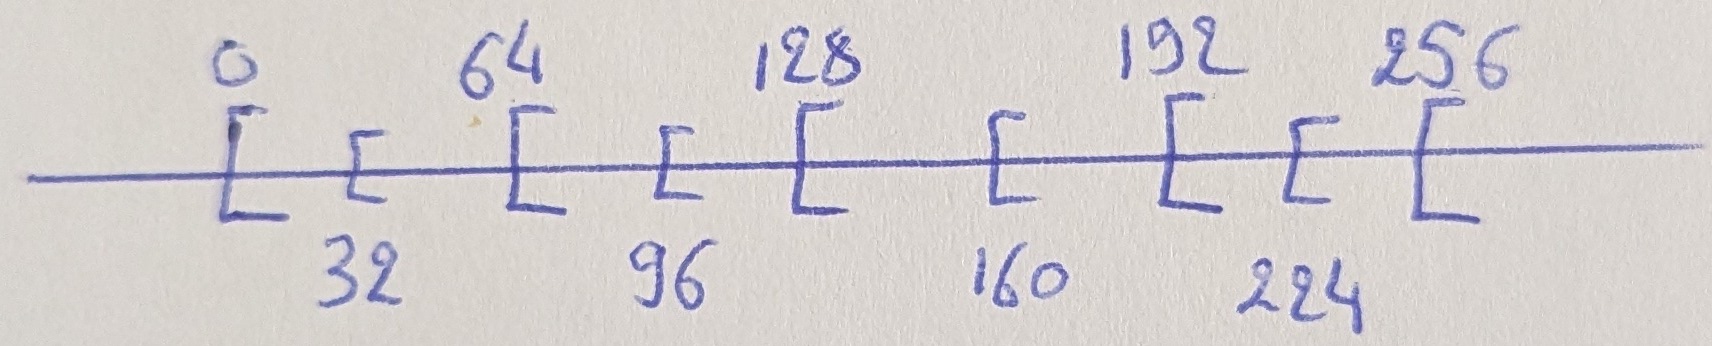 0 64 128 192 256
32 96 160 224